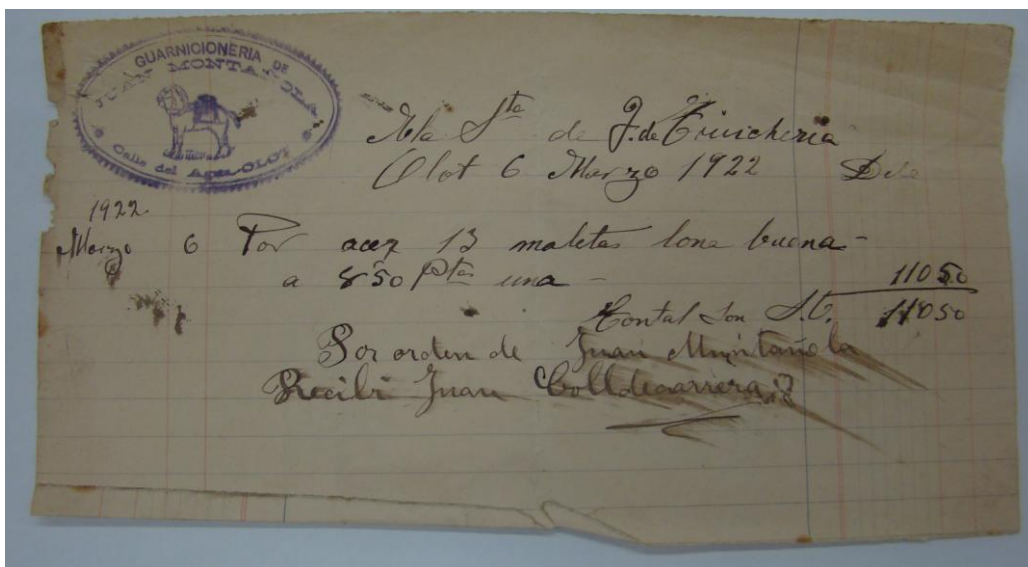 GUARNICIONERIA DE
JUAN MONTAÑOLA
Calle del Agua-OLOT
Sta de J. de
Olot 6 Marzo 1922 Debe
1922
Marzo 6 Por acer 13 maletas lona buena
a 8'50 Ptas una 110 50
Tontal son S.C. 110 50
Por orden de Juan Muntañola
Recibi Juan Colldecarrera